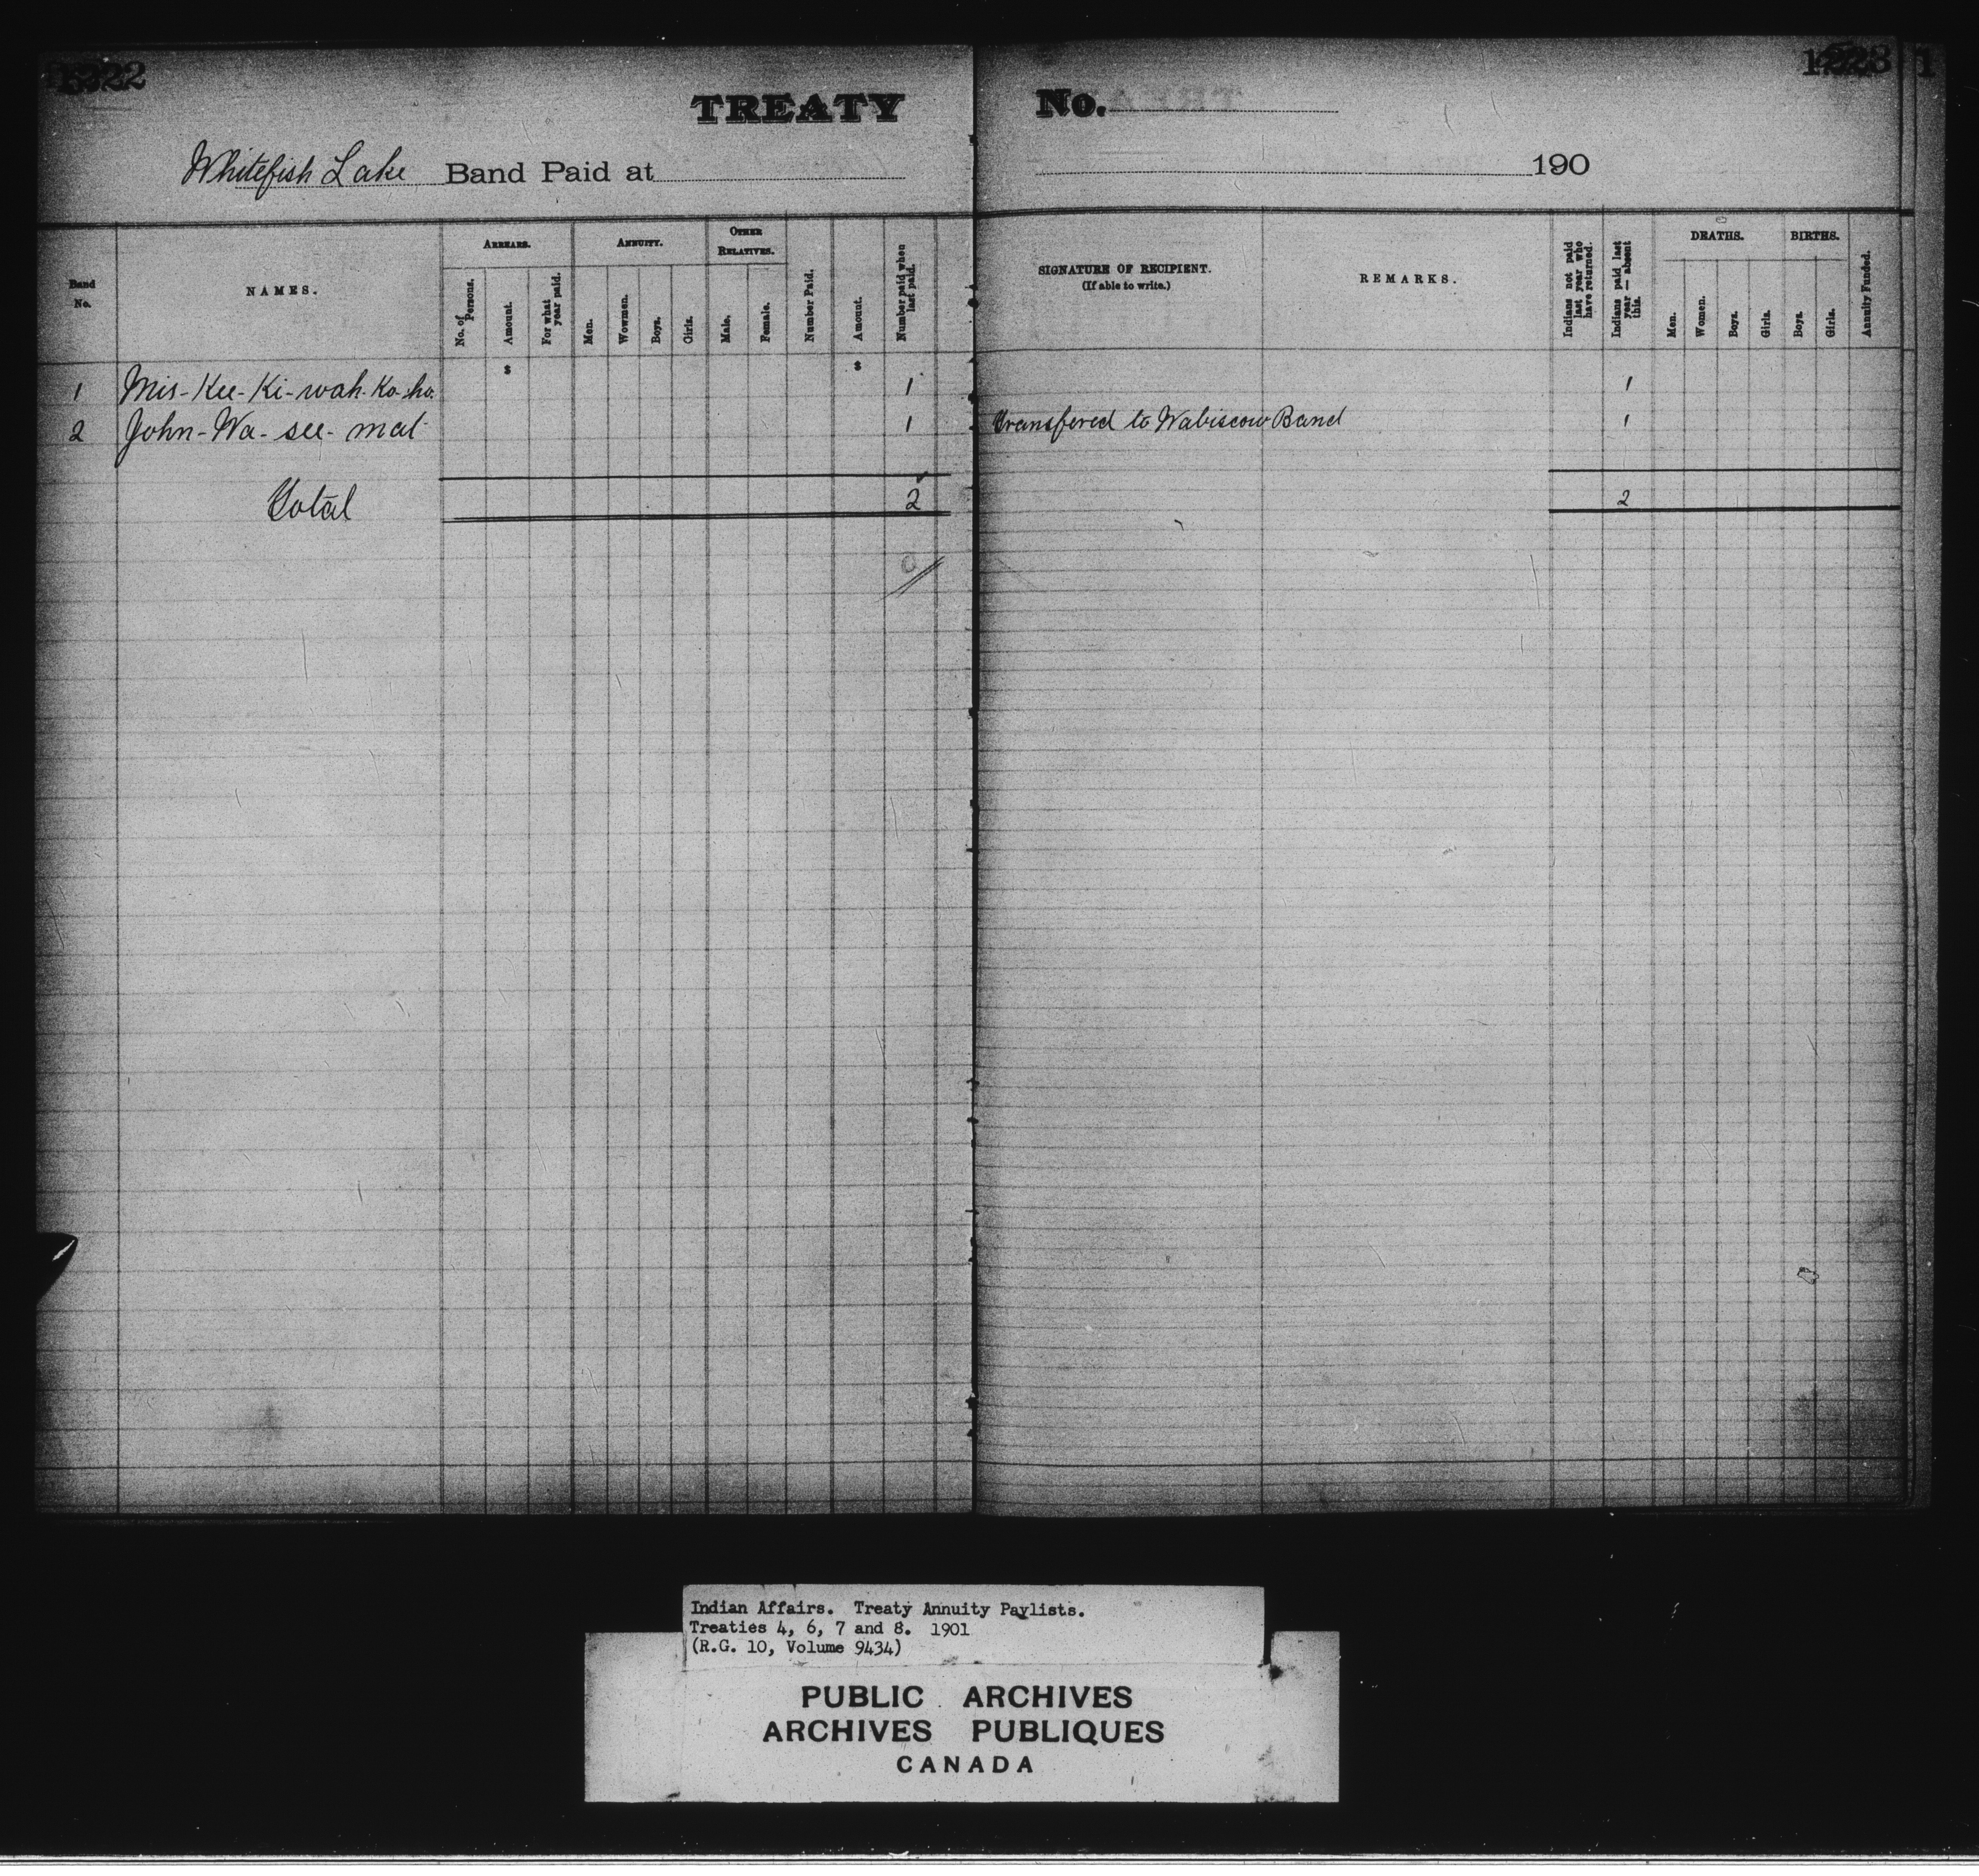 TREATY No.
Whitefish Lake Band Paid at 190
Band No.
NAMES.
ARREARS.
No. of Persons.
Amount.
For what year paid.
ANNUITY.
Men.
Wowmen.
Boys.
Girls.
OTHER RELATIVES.
Male.
Female.
Number Paid.
Amount.
Number paid when last paid.
SIGNATURE OF RECIPIENT.
(If able to write.)
REMARKS.
Indians not paid last year who have returned.
Indians paid last year — absent this.
DEATHS.
Men.
Women.
Boys.
Girls.
BIRTHS.
Boys.
Girls.
Annuity Funded.
$ $
1 Mis-Kee-Ki-wah-Ko-ho. 1 1
2 John-Wa-see-mat 1 Transfered to Wabiscow Band 1
Total 2 2
Indian Affairs. Treaty Annuity Paylists.
Treaties 4, 6, 7 and 8. 1901
(R.G. 10, Volume 9434)
PUBLIC ARCHIVES
ARCHIVES PUBLIQUES
CANADA